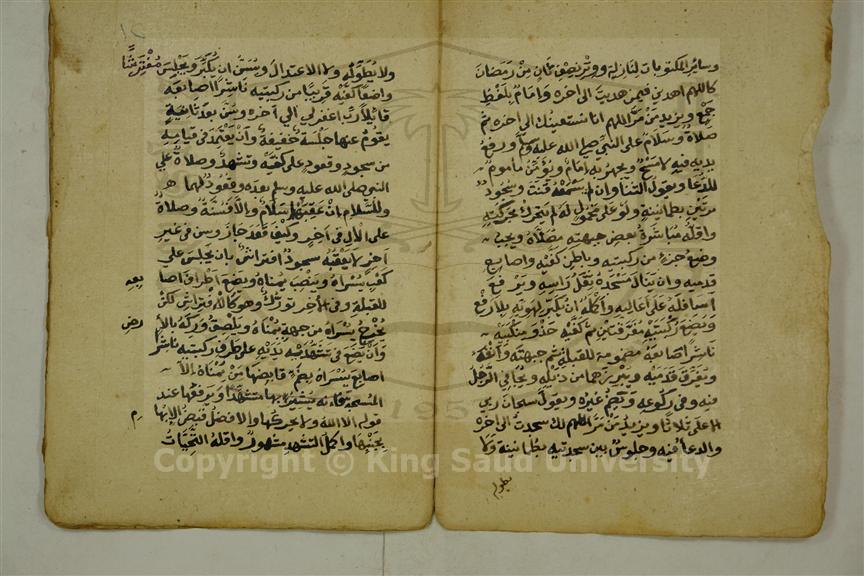 وسائر المكتوبات لنازلة ووتر نصف ثان من رمضان
كاللهم اهدني فيمن هديت الى اخره وامام بلفظ
جمع ويزيد من مر اللهم انا نستعينك الى اخره ثم
صلاة وسلام على النبي صلى الله عليه وسلم ورفع
يديه فيه لا مسح ويجهر به امام ويؤمن مأموم
للدعا ويقول الثنا وان لم يسمعه قنت وسجود
مرتين بطمانينة ولو على محمول له لم يتحرك بحركته
واقله مباشرة بعض جبهته مصلاه ويجب
وضع جزء من ركبتيه وباطن كفيه واصابع
قدميه وان ينال مسجده ثقل راسه وترفع
اسافله على اعاليه واكمله ان يكبر لهويه بلا رفع
ويضع ركبتيه مفرقتين ثم كفيه حذو منكبيه
ناشرا اصابعه مضمومة للقبلة ثم جبهته وانفه
ويفرق قدميه ويبرزهما من ذيله ويجافي الرجل
فيه وفي ركوعه ويضم غيره ويقول سبحان ربي
الاعلى ثلاثا ويزيد من مر اللهم لك سجدت الى اخره
والدعا فيه وجلوس بين سجدتيه بطمانينة ولا
يطوله
١٢
ولا يطوله ولا الاعتدال ويسن ان يكبر ويجلس مفترشا
واضعا كفيه قريبا من ركبتيه ناشرا اصابعه
قائلا رب اغفر لي الى اخره وسن بعد ثانية
يقوم عنها جلسة خفيفة وان يعتمد في قيامه
من سجود وقعود على كفيه وتشهد وصلاة على
النبي صلى الله عليه وسلم بعده وقعود لهما
وللسلام ان عقبها سلام والا فسنة وصلاة
على الال في اخر وكيف قعد جاز وسن في غير
اخر لا يعقبه سجود افتراش بان يجلس على
كعب يسراه وينصب يمناه ويضع اطراف اصا
بعه
للقبلة وفي الاخر تورك وهو كالافتراش لكن
يخرج يسراه من جهة يمناه ويلصق وركه بالا
رض
وان يضع في تشهديه يديه على طرف ركبتيه ناشرا
اصابع يسراه بضم قابضها من يمناه الا
المسبحة ويرفعها عند
قوله الا الله ولا يحركها والافضل قبض الابها
م
بجنبها واكمل التشهد مشهور واقله التحيات
Copyright © King Saud University
1957